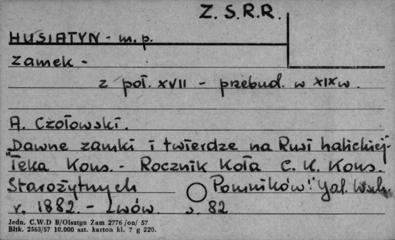 Z. S. R. R.
HUSIATYN - m. p.
Zamek -
z poł. XVII - przebud. w XIX w.
A. Czołowski.
Dawne zamki i twierdze na Rusi halickiej-
"Teka Kons. - Rocznik Koła C. K. Kons.
Starożytnych Pomników." Gal. Wsch.
r. 1882. - Lwów. s. 82
Jedn. C.W.D B/Olsztyn Zam 2776/on/ 57
Bltk. 2563/57 10.000 szt. karton kl. 7 g 220.